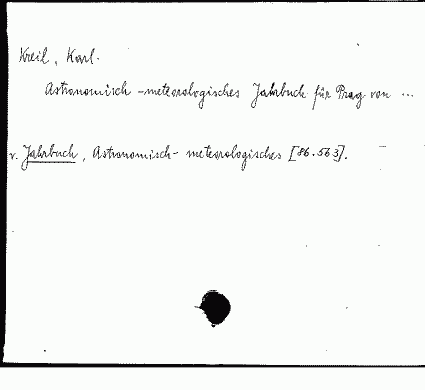 Kreil, Karl.
Astronomisch-meteorologisches Jahrbuch für Prag von ...
v. Jahrbuch, Astronomisch-meteorologisches [86.563].